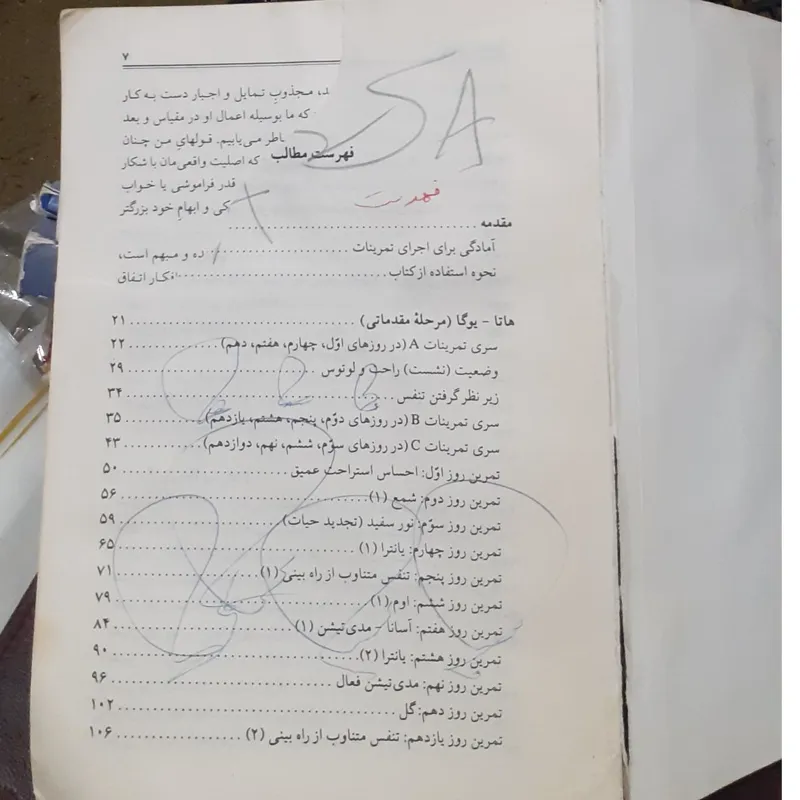 ۷
د، مجذوبِ تمایل و اجبار دست به کار
که ما بوسیله اعمال او در مقیاس و بعد
اطر می‌یابیم. قولهایِ من چنان
فهرست مطالب
که اصلیت واقعی‌مان با شکار
قدر فراموشی یا خواب
فهرست
کی و ابهامِ خود بزرگتر
مقدمه
آمادگی برای اجرای تمرینات
ده و مبهم است،
نحوه استفاده از کتاب
فکار اتفاق
هاتا - یوگا (مرحلهٔ مقدماتی) ۲۱
سری تمرینات A (در روزهای اوّل، چهارم، هفتم، دهم) ۲۲
وضعیت (نشست) راحت و لوتوس ۲۹
زیر نظر گرفتن تنفس ۳۴
سری تمرینات B (در روزهای دوّم، پنجم، هشتم، یازدهم) ۳۵
سری تمرینات C (در روزهای سوّم، ششم، نهم، دوازدهم) ۴۳
تمرین روز اوّل: احساس استراحت عمیق ۵۰
تمرین روز دوم: شمع (۱) ۵۶
تمرین روز سوّم: نور سفید (تجدید حیات) ۵۹
تمرین روز چهارم: یانترا (۱) ۶۵
تمرین روز پنجم: تنفس متناوب از راه بینی (۱) ۷۱
تمرین روز ششم: اوم (۱) ۷۹
تمرین روز هفتم: آسانا - مدی‌تیشن (۱) ۸۴
تمرین روز هشتم: یانترا (۲) ۹۰
تمرین روز نهم: مدی‌تیشن فعال ۹۶
تمرین روز دهم: گل ۱۰۲
تمرین روز یازدهم: تنفس متناوب از راه بینی (۲) ۱۰۶